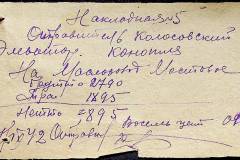 Накладная №5
Отправитель Колосовский
Элеватор. Конопля
На Маслозавод Мостовое
Брутто 2790
Тара 1895
Нетто 895
Отправил Восемь цент 09